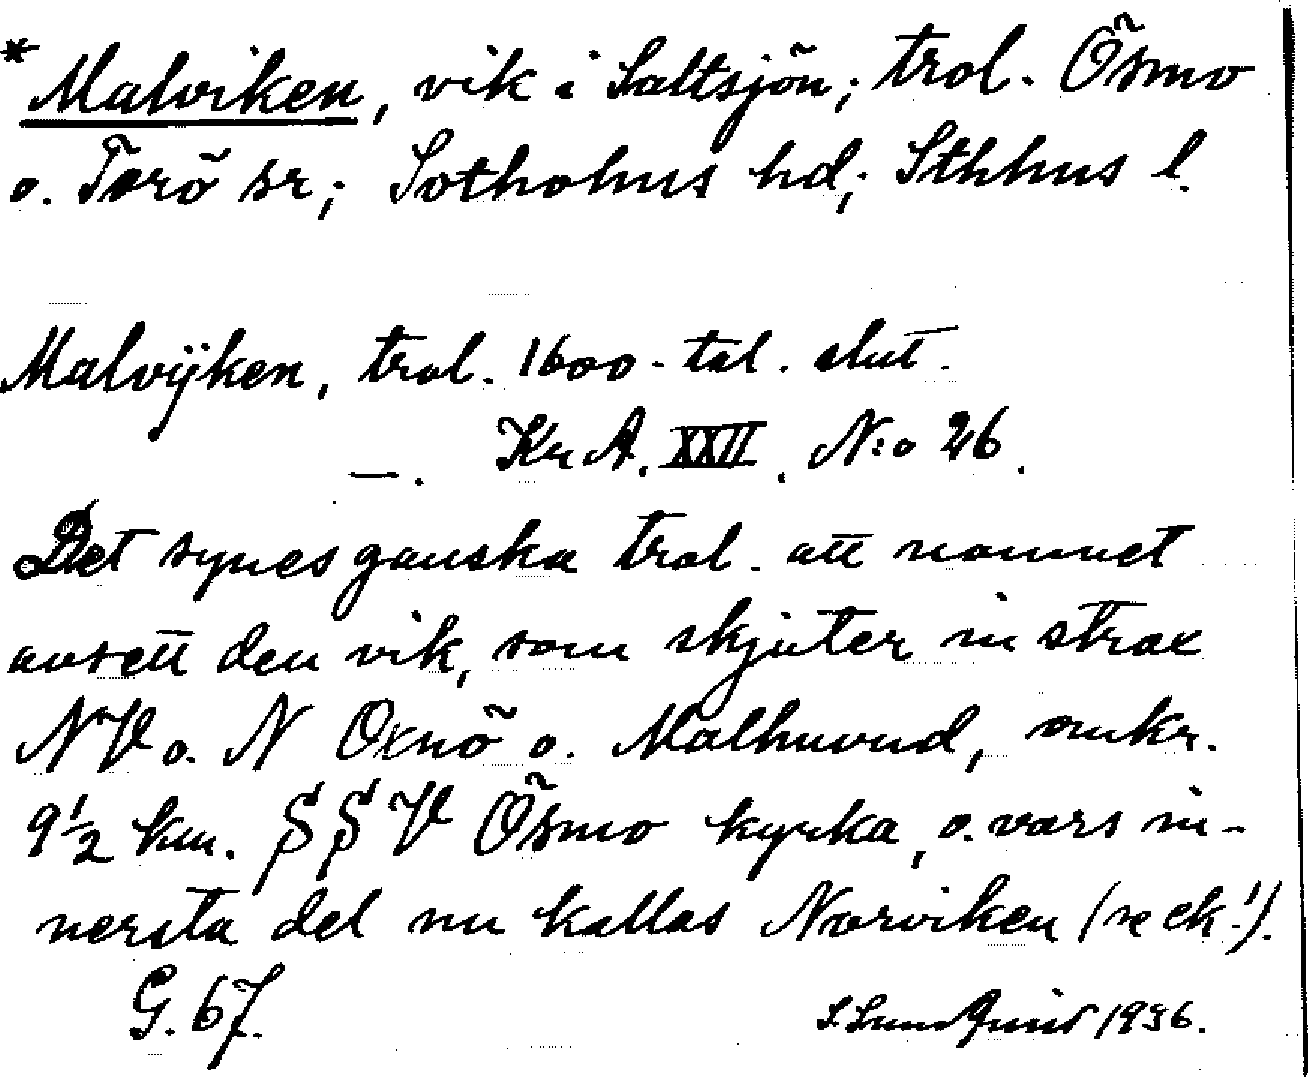 * Malviken, vik i Saltsjön; trol. Ösmo
o. Torö sr; Sotholms hd; Sthlms l.
Malvÿken, trol. 1600-tal. slut.
—. Kr A. XXII. N:o 26.
Det synes ganska trol. att namnet
avsett den vik, som skjuter in strax
NV o. N Oxnö o. Malhuvud, omkr.
9 1/2 km. SSV Ösmo kyrka, o. vars in-
nersta del nu kallas Norviken (se ek!).
G. 67.
S. Lundquist 1936.